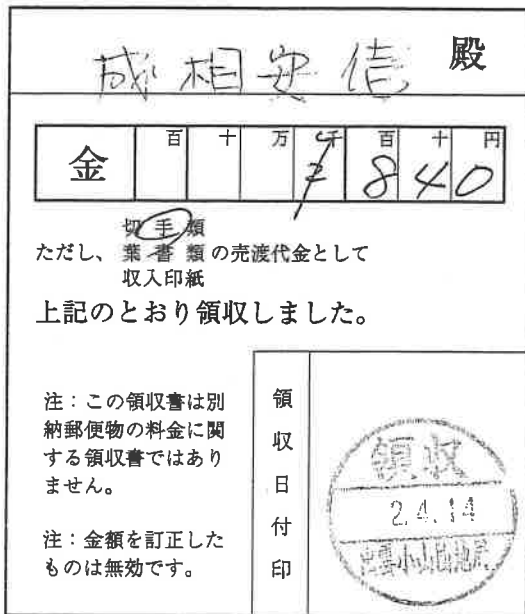 成相安信 殿
金 百 十 万 千 百 十 円
840
切手類
ただし、 葉書類 の売渡代金として
収入印紙
上記のとおり領収しました。
注：この領収書は別
納郵便物の料金に関
する領収書ではあり
ません。
注：金額を訂正した
ものは無効です。
領収日付印
領収
2.4.14